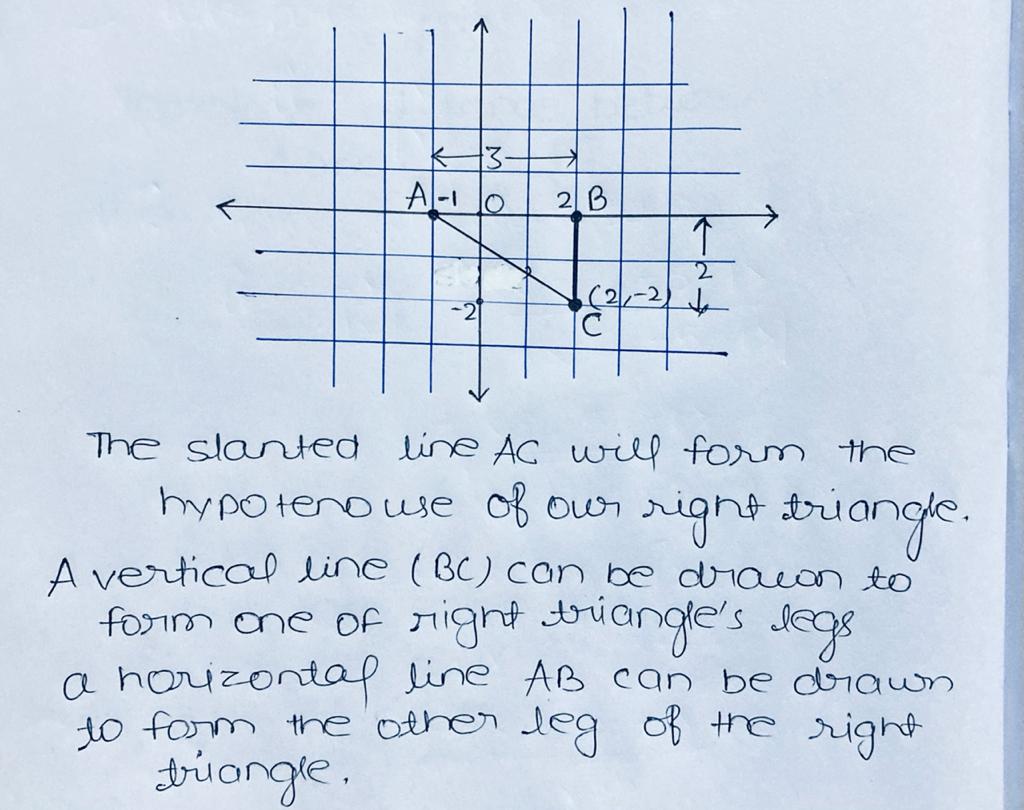 3
A -1 0 2 B
2
-2 (2,-2)
C
The slanted line AC will form the
hypotenouse of our right triangle.
A vertical line (BC) can be drawn to
form one of right triangle's legs
a horizontal line AB can be drawn
to form the other leg of the right
triangle.